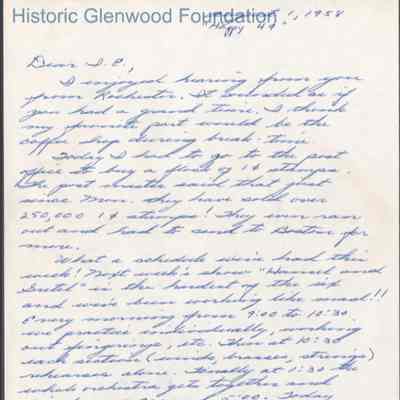 Historic Glenwood Foundation
1, 1958
"Happy 49"
Dear I.E.,
I enjoyed hearing from you
from Rochester. It sounded as if
you had a grand time. I think
my favorite part would be the
coffee shop during break-time.
Today I had to go to the post
office to buy a few 1¢ stamps.
The post master said that just
since Mon. they have sold over
250,000 1¢ stamps! They even ran
out and had to send to Boston for
more.
What a schedule we've had this
week! Next week's show "Hansel and
Gretel" is the hardest of the six
and we've been working like mad!!
Every morning from 9:00 to 10:30
we practice individually, working
out fingerings, etc. Then at 10:30
each section (winds, brasses, strings)
rehearses alone. Finally at 1:30 the
whole orchestra gets together and
5:00. Today